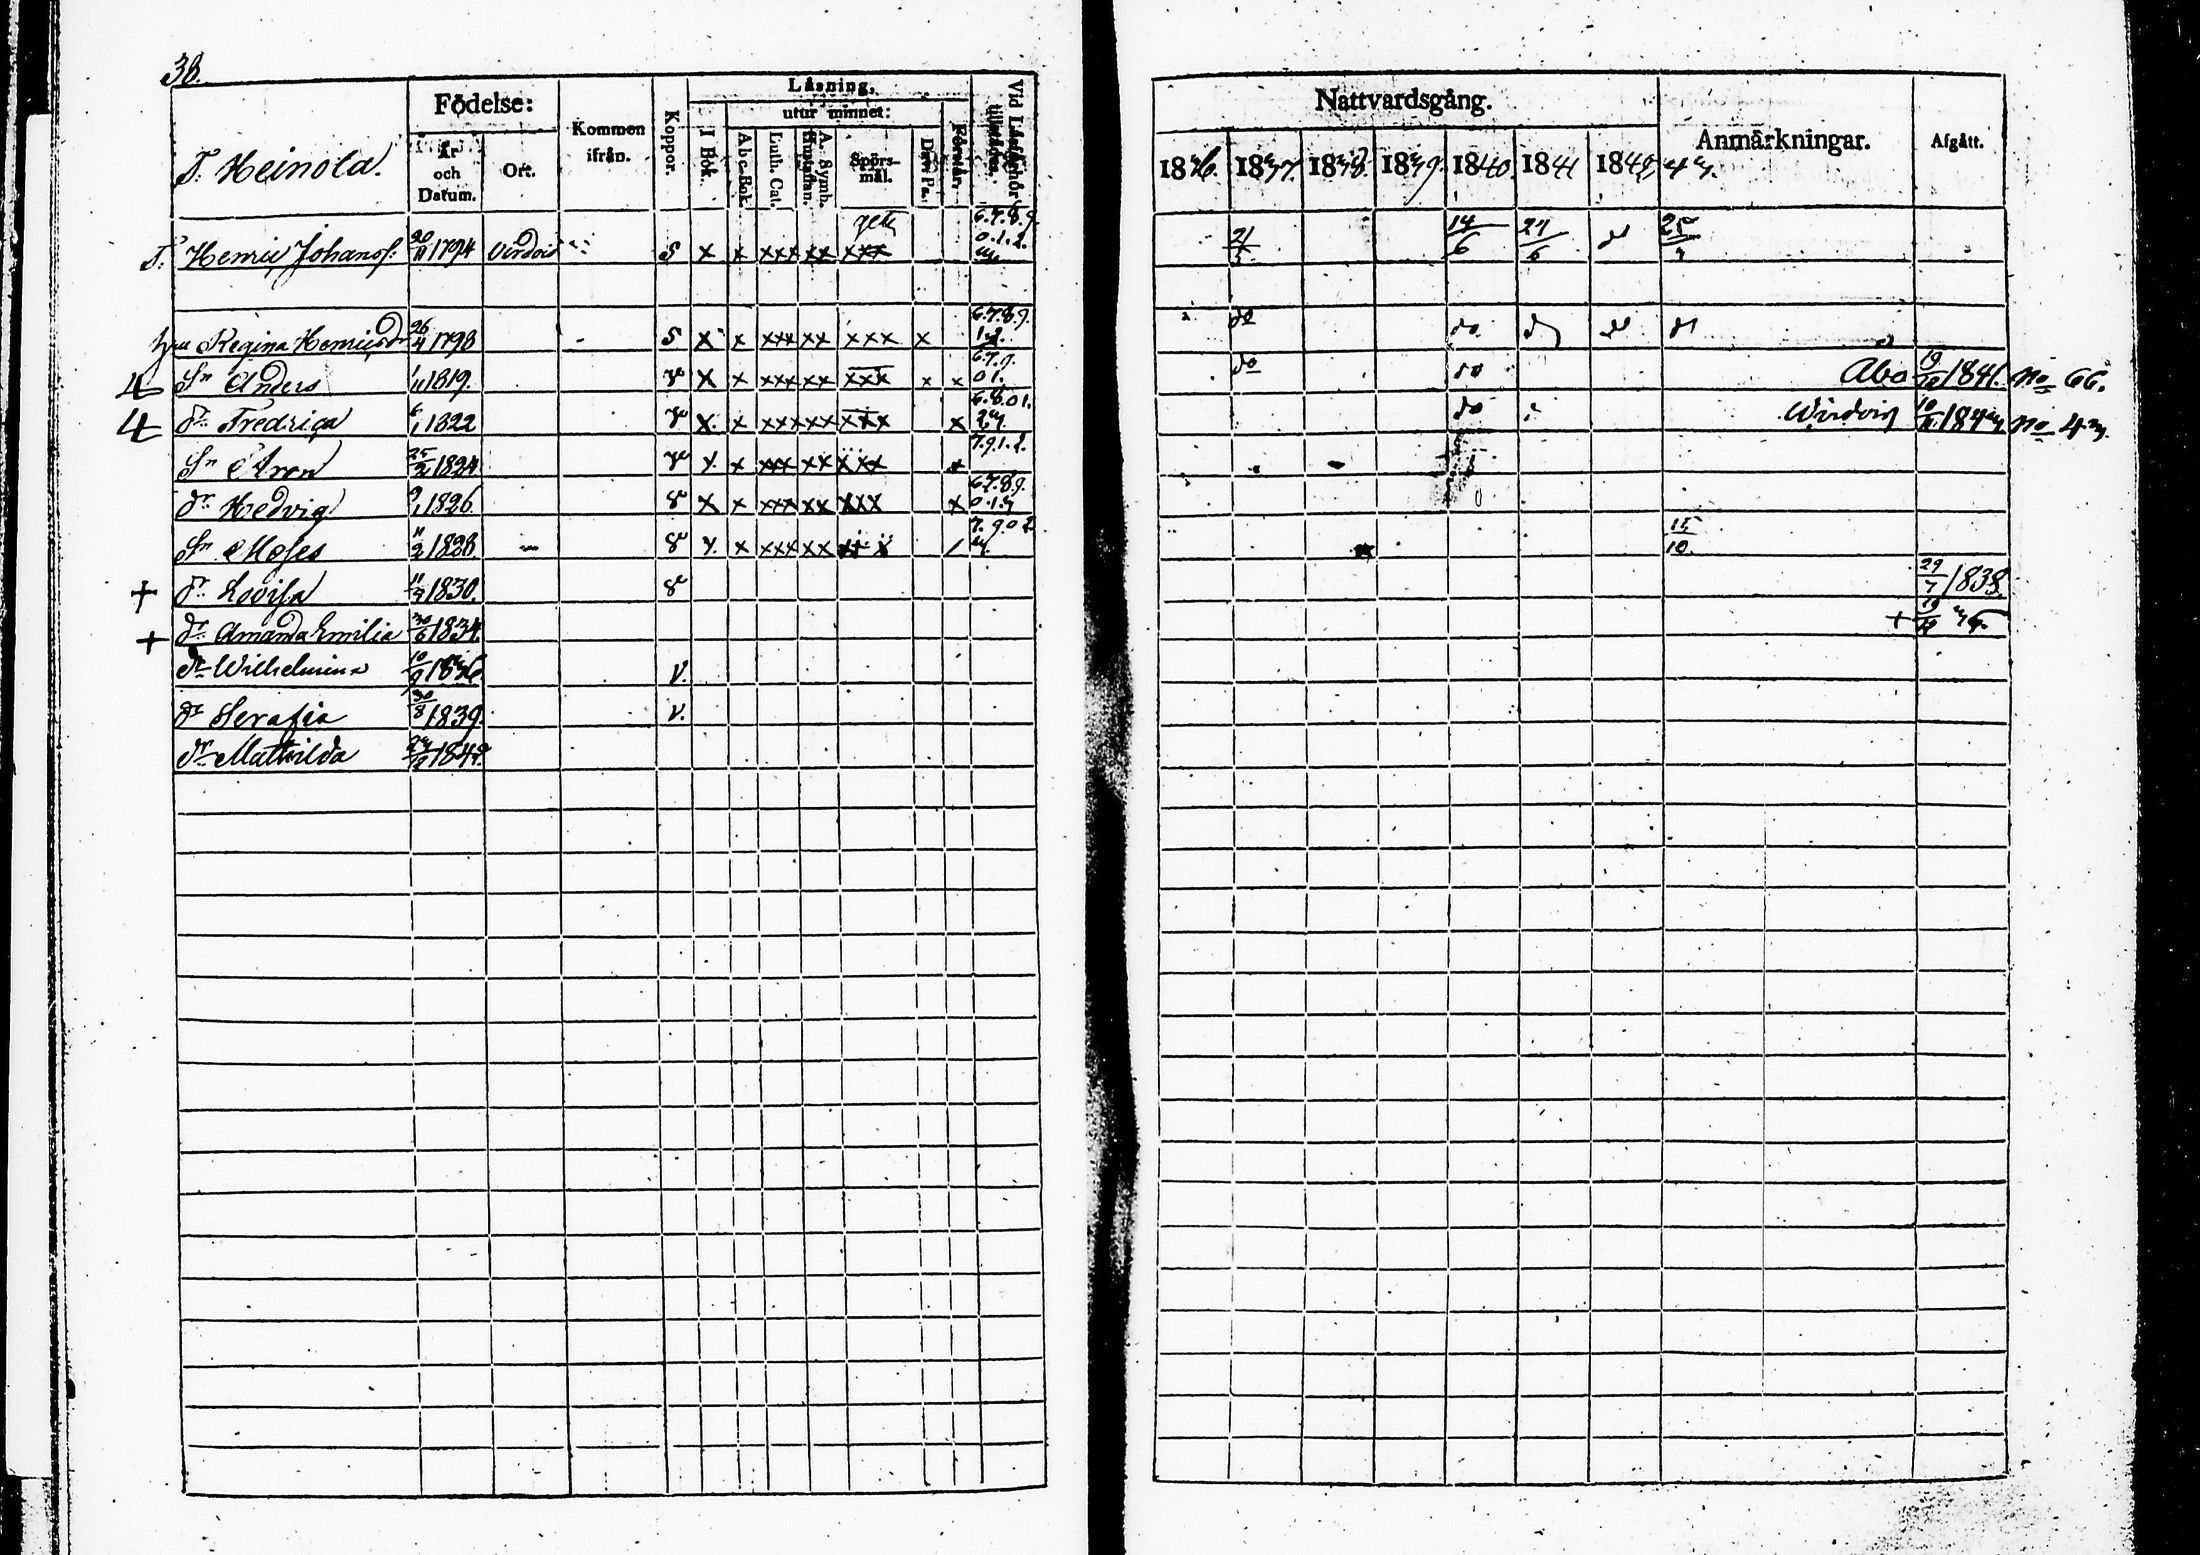 38.
Födelse:
Läsning.
utur minnet:
T. Heinola.
År och Datum.
Ort.
Kommen ifrån.
Koppor.
I Bok.
Abc-Bok.
Luth. Cat.
A. Symb. Hustaflan.
Spörsmål.
Dav. Ps.
Förstår.
Vid Läseförhör tillstädes.
Nattvardsgång.
1836. 1837. 1838. 1839. 1840. 1841 1842 43.
Anmärkningar.
Afgått.
T. Henric Johanss: 20/11 1794 Virdois S x x xxx xx xxx 6.7.8.9. 0.1.2. 21/5 14/6 27/6 do 25/3
Hu Regina Henricsdr 26/4 1798 S x x xxx xx xxx x 6.7.8.9. 1.2. do do do do do
Sn Anders 1/11 1819. v x x xxx xx xxx x x 6.7.9. 0 1. do do Åbo 19/12 1841. No 66.
dr Fredrica 6/1 1822 v x x xxx xx xxx x 6.8.0 1. 2.3 do Wirdois 10/11 1843 No 43.
Sn Aron 25/2 1824 v x x xxx xx xxx x 7.9.1.2.
dr Hedvig 9/1 1826 v x x xxx xx xxx x 6.7.8.9. 0.1.3
Sn Moses 11/2 1828 v x x xxx xx xx x / 7.9.0 2. 3. 15/10.
+ dr Lovisa 11/7 1830. v 29/7 1838.
+ dr Amanda Emilia 30/6 1834. + 19/12 36.
dr Wilhelmina 10/9 1836 v.
dr Serafia 30/8 1839. v.
dr Mathilda 23/12 1842